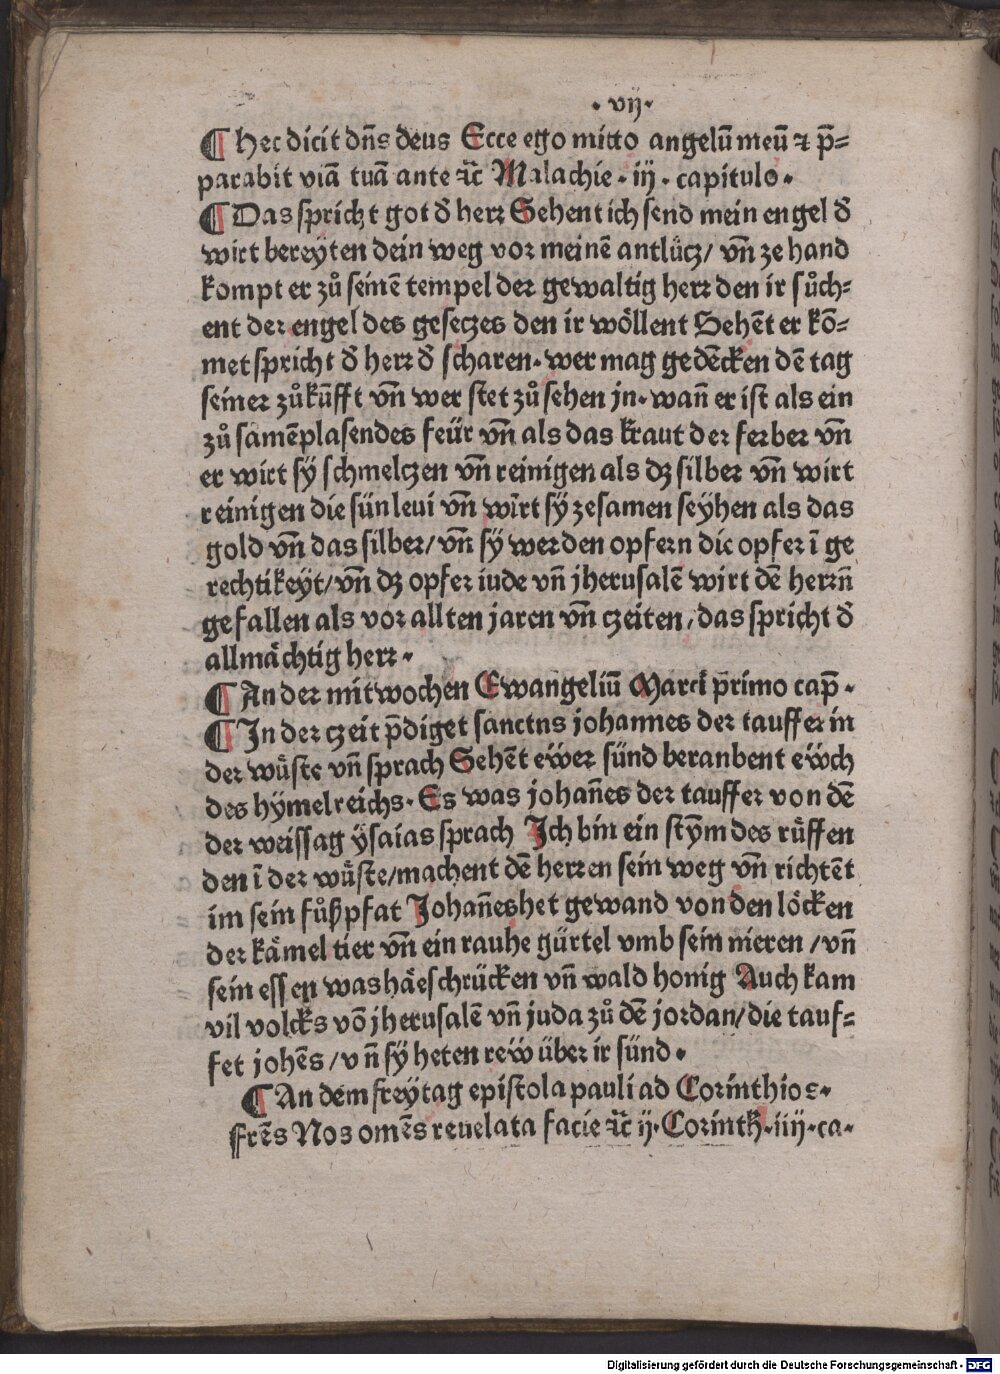 · vij·
¶ Hec dicit dn̄s deus Ecce ego mitto angelū meū ⁊ p̄=
parabit viā tuā ante ⁊c̄ Malachie · iij · capitulo ·
¶ Das spricht got d̄ herr Sehent ich send mein engel d̄
wirt bereyten dein weg vor meinē antlütz/ vn̄ ze hand
kompt er zů seinē tempel der gewaltig herr den ir sůch=
ent der engel des gesetzes den ir wöllent Sehēt er kō=
met spricht d̄ herr d̄ scharen· wer mag gedēcken dē tag
seiner zůkūfft vn̄ wer stet zů sehen jn· wan̄ er ist als ein
zů samēplasendes feür vn̄ als das kraut der ferber vn̄
er wirt sÿ schmeltzen vn̄ reinigen als dz silber vn̄ wirt
reinigen die sün leui vn̄ wirt sÿ zesamen seyhen als das
gold vn̄ das silber/ vn̄ sÿ werden opfern die opfer ī ge
rechtikeyt/ vn̄ dz opfer iude vn̄ jherusalē wirt dē herrn̄
gefallen als vor allten jaren vn̄ tzeiten/ das spricht d̄
allmächtig herr ·
¶ An der mitwochen Ewangeliū Marci p̄rimo cap̄ ·
¶ In der tzeit p̄diget sanctus johannes der tauffer in
der wüste vn̄ sprach Sehēt ewer sünd beranbent ewch
des hymelreichs· Es was johan̄es der tauffer von dē
der weissag ysaias sprach Ich bin ein stym des rüffen
den ī der wüste/machent dē herren sein weg vn̄ richtēt
im sein fůßpfat Johan̄es het gewand von den löcken
der kämel tier vn̄ ein rauhe gürtel vmb sein nieren /vn̄
sein essen was häeschrücken vn̄ wald honig Auch kam
vil volcks vō jherusalē vn̄ juda zů dē jordan/ die tauf=
fet johēs /vn̄ sÿ heten rew über ir sünd ·
¶ An dem freytag epistola pauli ad Corinthios·
Frēs Nos omēs reuelata facie ⁊c̄ ij· Corinth· iiij ·ca·
Digitalisierung gefördert durch die Deutsche Forschungsgemeinschaft - DFG